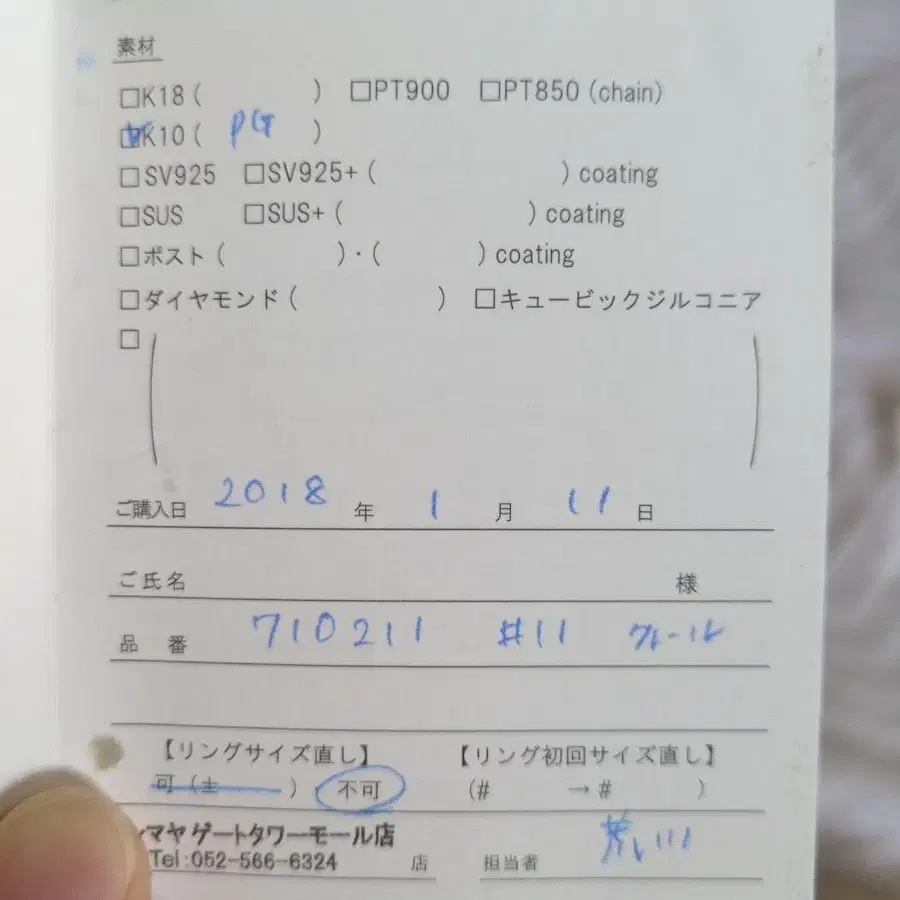 素材
□K18（　　　） □PT900 □PT850 (chain)
☑K10（ PG ）
□SV925 □SV925+（　　　）coating
□SUS □SUS+（　　　）coating
□ポスト（　　　）・（　　　）coating
□ダイヤモンド（　　　） □キュービックジルコニア
□（　　　）
ご購入日 2018 年 1 月 11 日
ご氏名 様
品番 710211 #11
【リングサイズ直し】 【リング初回サイズ直し】
可（±　　） 不可 （#　　→#　　）
マヤゲートタワーモール店
Tel:052-566-6324 店 担当者